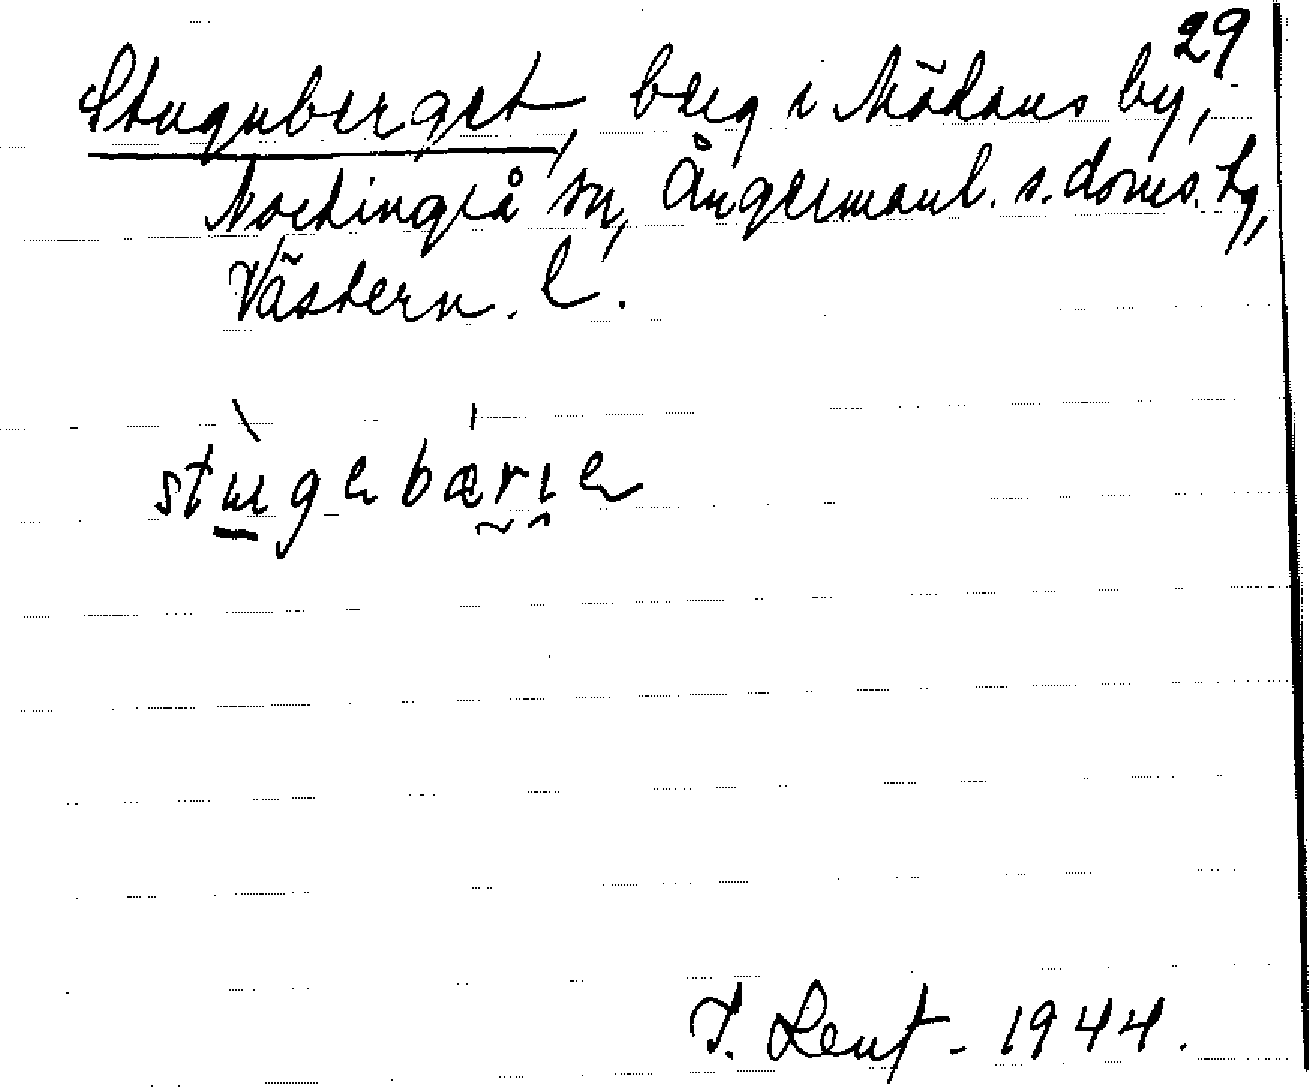 29
Stuguberget, berg i Mädans by,
Nordingrå sn, Ångermanl. s. doms. hg,
Västern. l.
stugebærıe
1944.